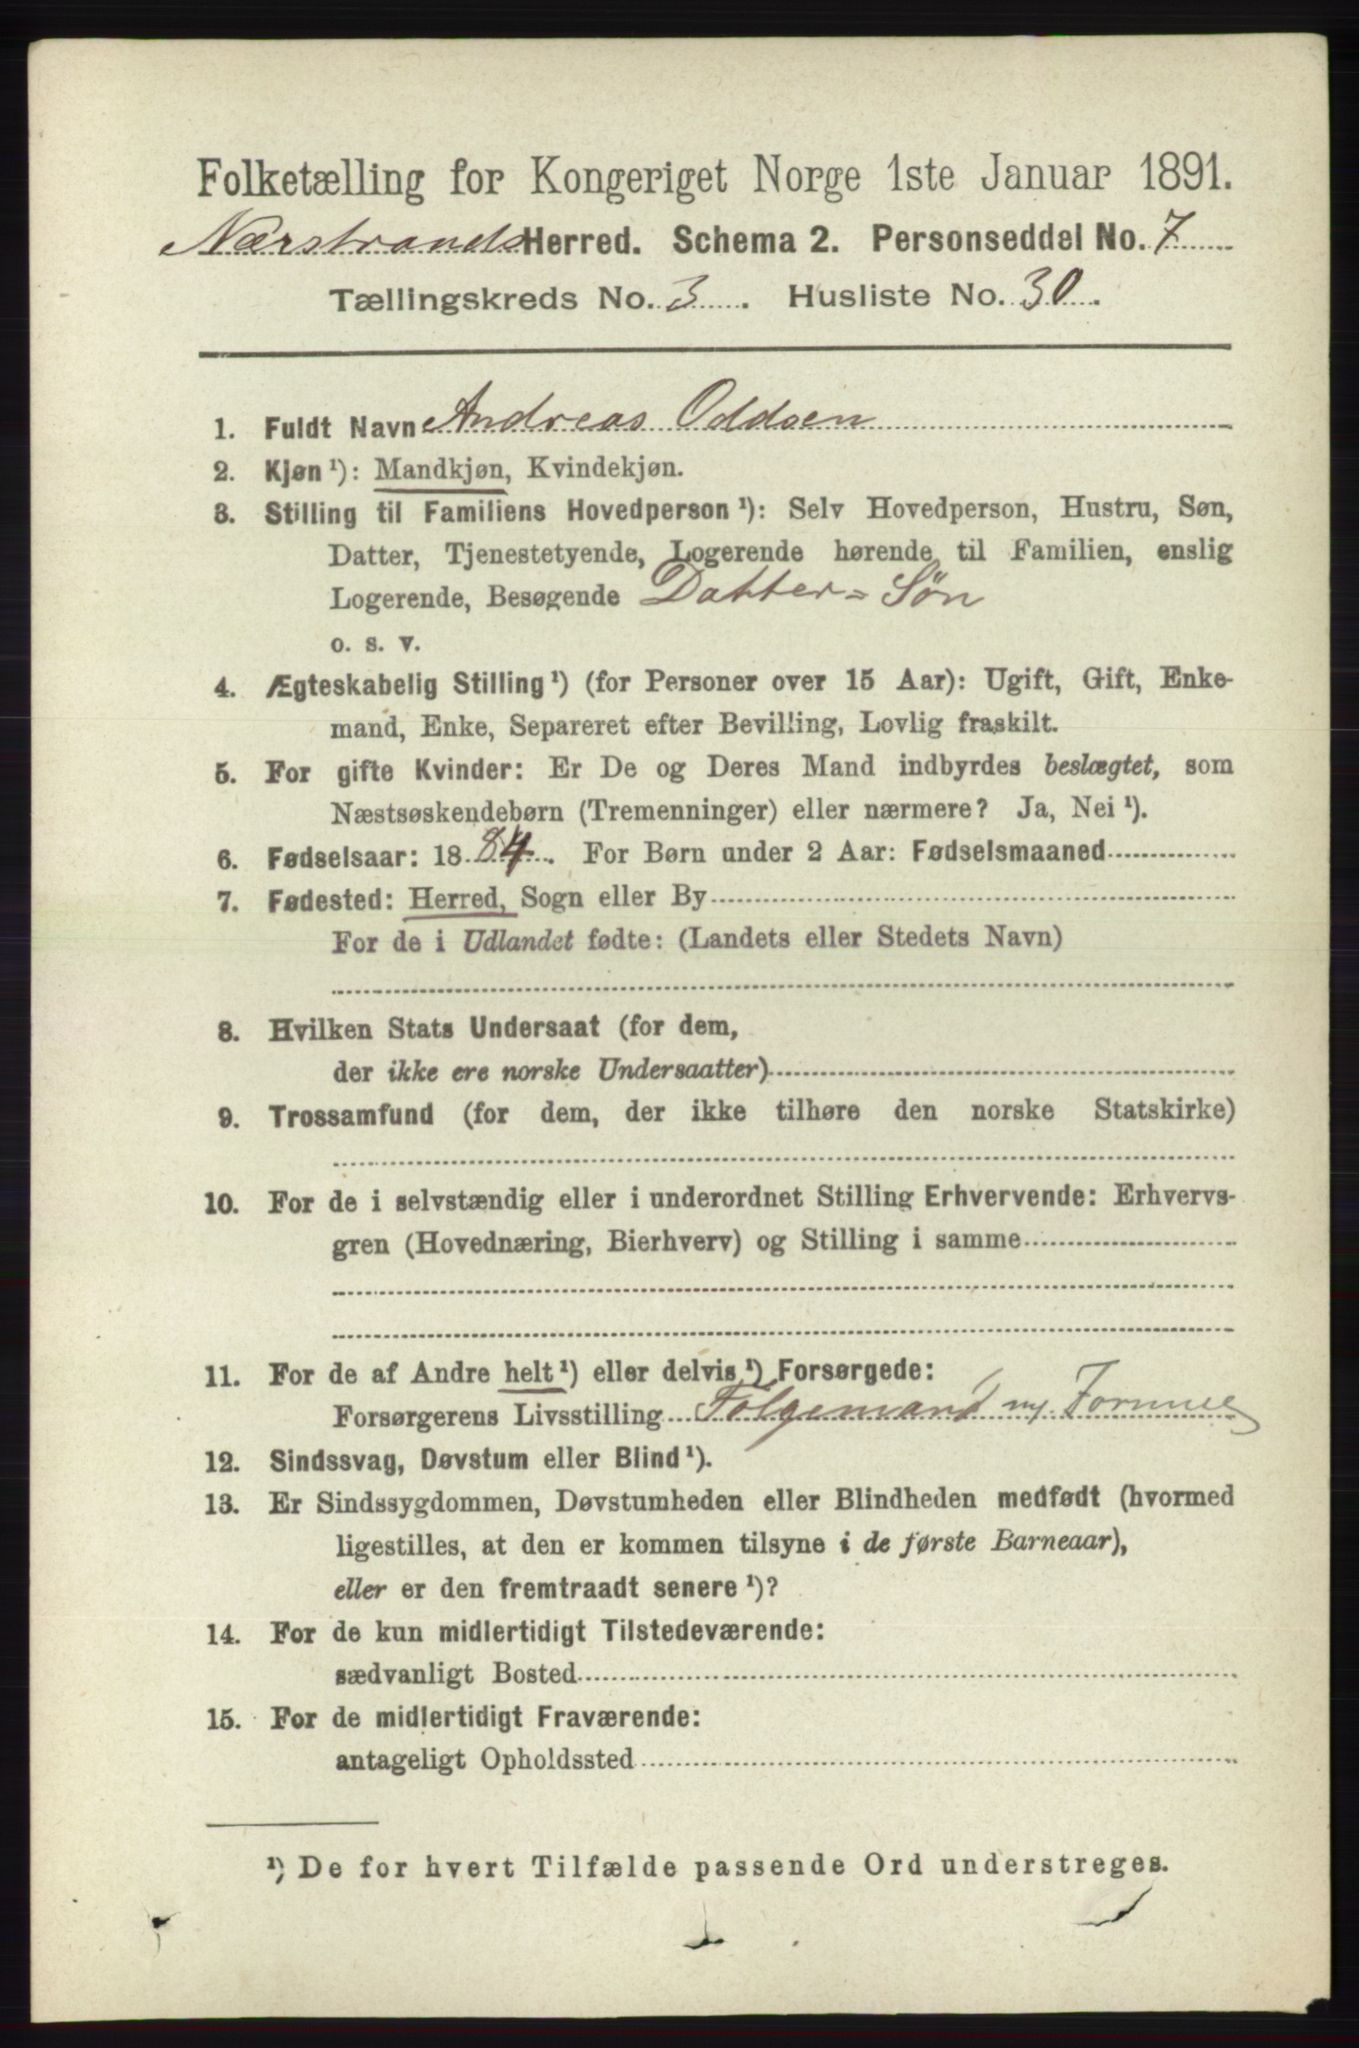 Folketælling for Kongeriget Norge 1ste Januar 1891.
Nærstrands Herred. Schema 2. Personseddel No. 7
Tællingskreds No. 3. Husliste No. 30.
1. Fuldt Navn Andreas Oddsen
2. Kjøn ¹): Mandkjøn, Kvindekjøn.
3. Stilling til Familiens Hovedperson ¹): Selv Hovedperson, Hustru, Søn,
Datter, Tjenestetyende, Logerende hørende til Familien, enslig
Logerende, Besøgende Datter=Søn
o. s. v.
4. Ægteskabelig Stilling ¹) (for Personer over 15 Aar): Ugift, Gift, Enke-
mand, Enke, Separeret efter Bevilling, Lovlig fraskilt.
5. For gifte Kvinder: Er De og Deres Mand indbyrdes beslægtet, som
Næstsøskendebørn (Tremenninger) eller nærmere? Ja, Nei ¹).
6. Fødselsaar: 1884. For Børn under 2 Aar: Fødselsmaaned
7. Fødested: Herred, Sogn eller By
For de i Udlandet fødte: (Landets eller Stedets Navn)
8. Hvilken Stats Undersaat (for dem,
der ikke ere norske Undersaatter)
9. Trossamfund (for dem, der ikke tilhøre den norske Statskirke)
10. For de i selvstændig eller i underordnet Stilling Erhvervende: Erhvervs-
gren (Hovednæring, Bierhverv) og Stilling i samme
11. For de af Andre helt ¹) eller delvis ¹) Forsørgede:
Forsørgerens Livsstilling Følgemand Formue
12. Sindssvag, Døvstum eller Blind ¹).
13. Er Sindssygdommen, Døvstumheden eller Blindheden medfødt (hvormed
ligestilles, at den er kommen tilsyne i de første Barneaar),
eller er den fremtraadt senere ¹)?
14. For de kun midlertidigt Tilstedeværende:
sædvanligt Bosted
15. For de midlertidigt Fraværende:
antageligt Opholdssted
¹) De for hvert Tilfælde passende Ord understreges.